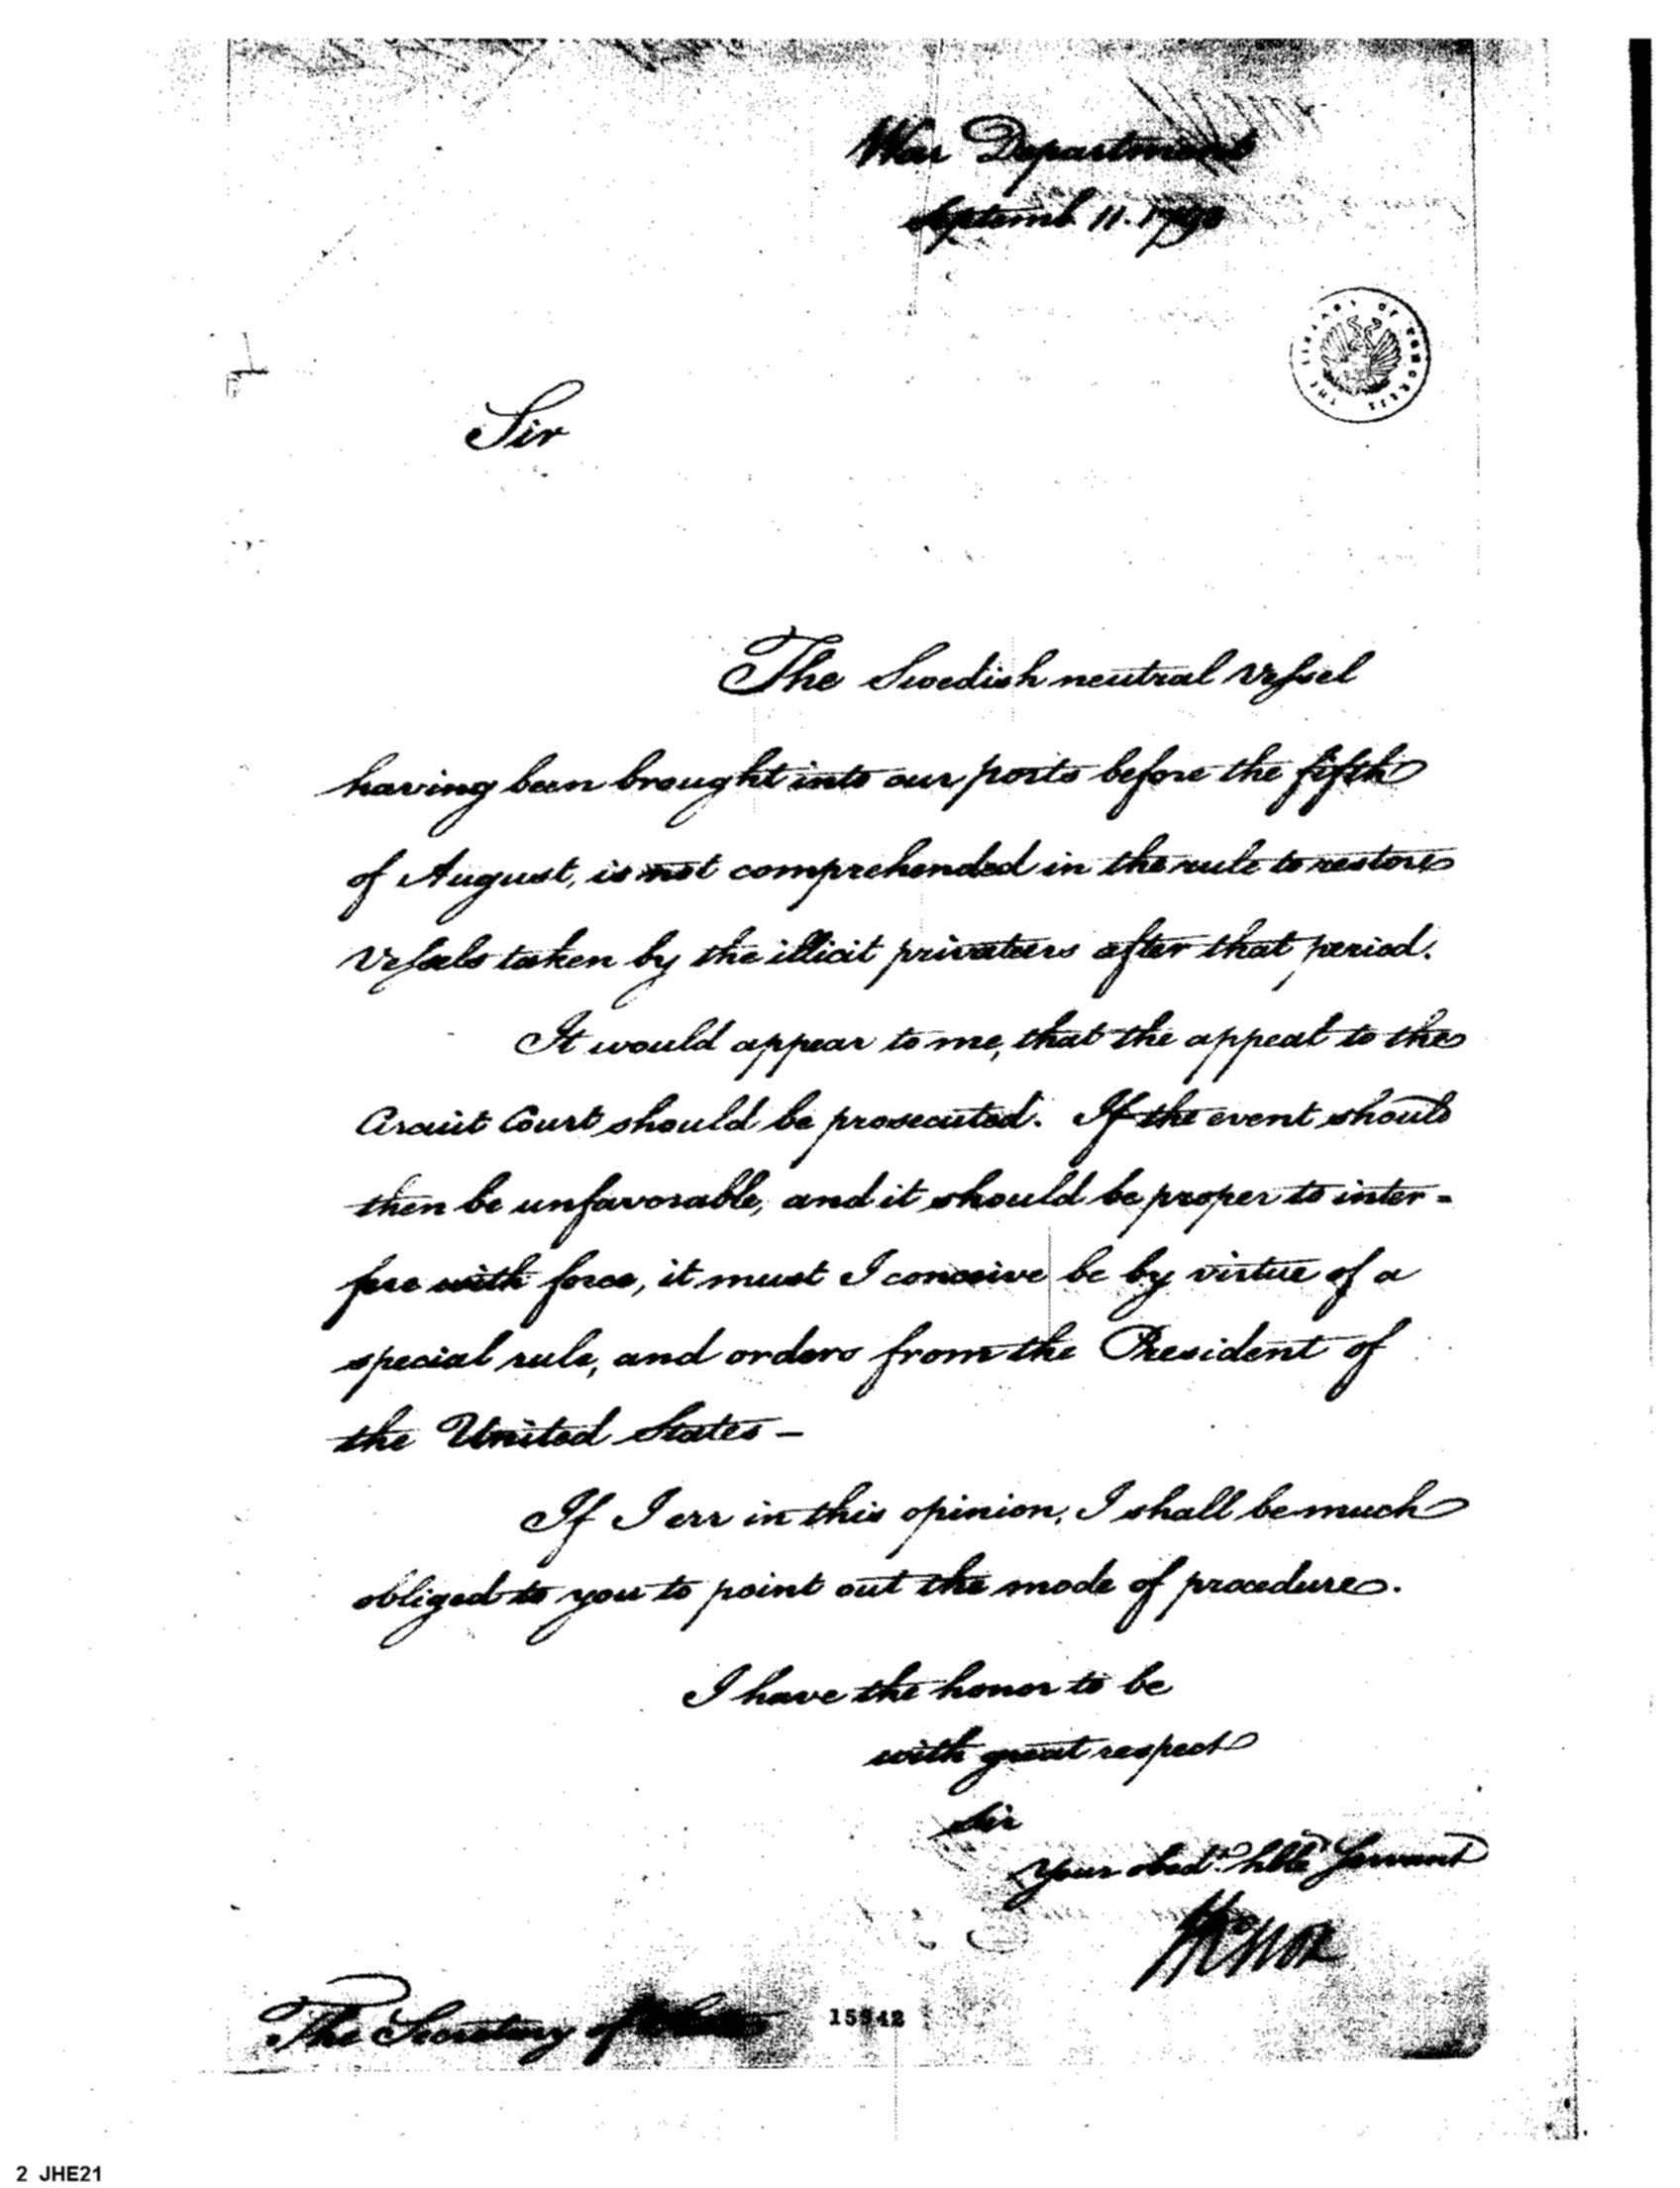 War Department
Septemb. 11. 1793
THE LIBRARY OF CONGRESS
Sir
The Swedish neutral Vessel
having been brought into our ports before the fifth
of August, is not comprehended in the rule to restore
Vessels taken by the illicit privateers after that period.
It would appear to me, that the appeal to the
Circuit Court should be prosecuted. If the event should
then be unfavorable, and it should be proper to inter=
fere with force, it must I conceive be by virtue of a
special rule, and orders from the President of
the United States –
If I err in this opinion, I shall be much
obliged to you to point out the mode of procedure.
I have the honor to be
with great respect
Sir
Your obedt. hble Servant
HKnox
The Secretary of State
15942
2 JHE21